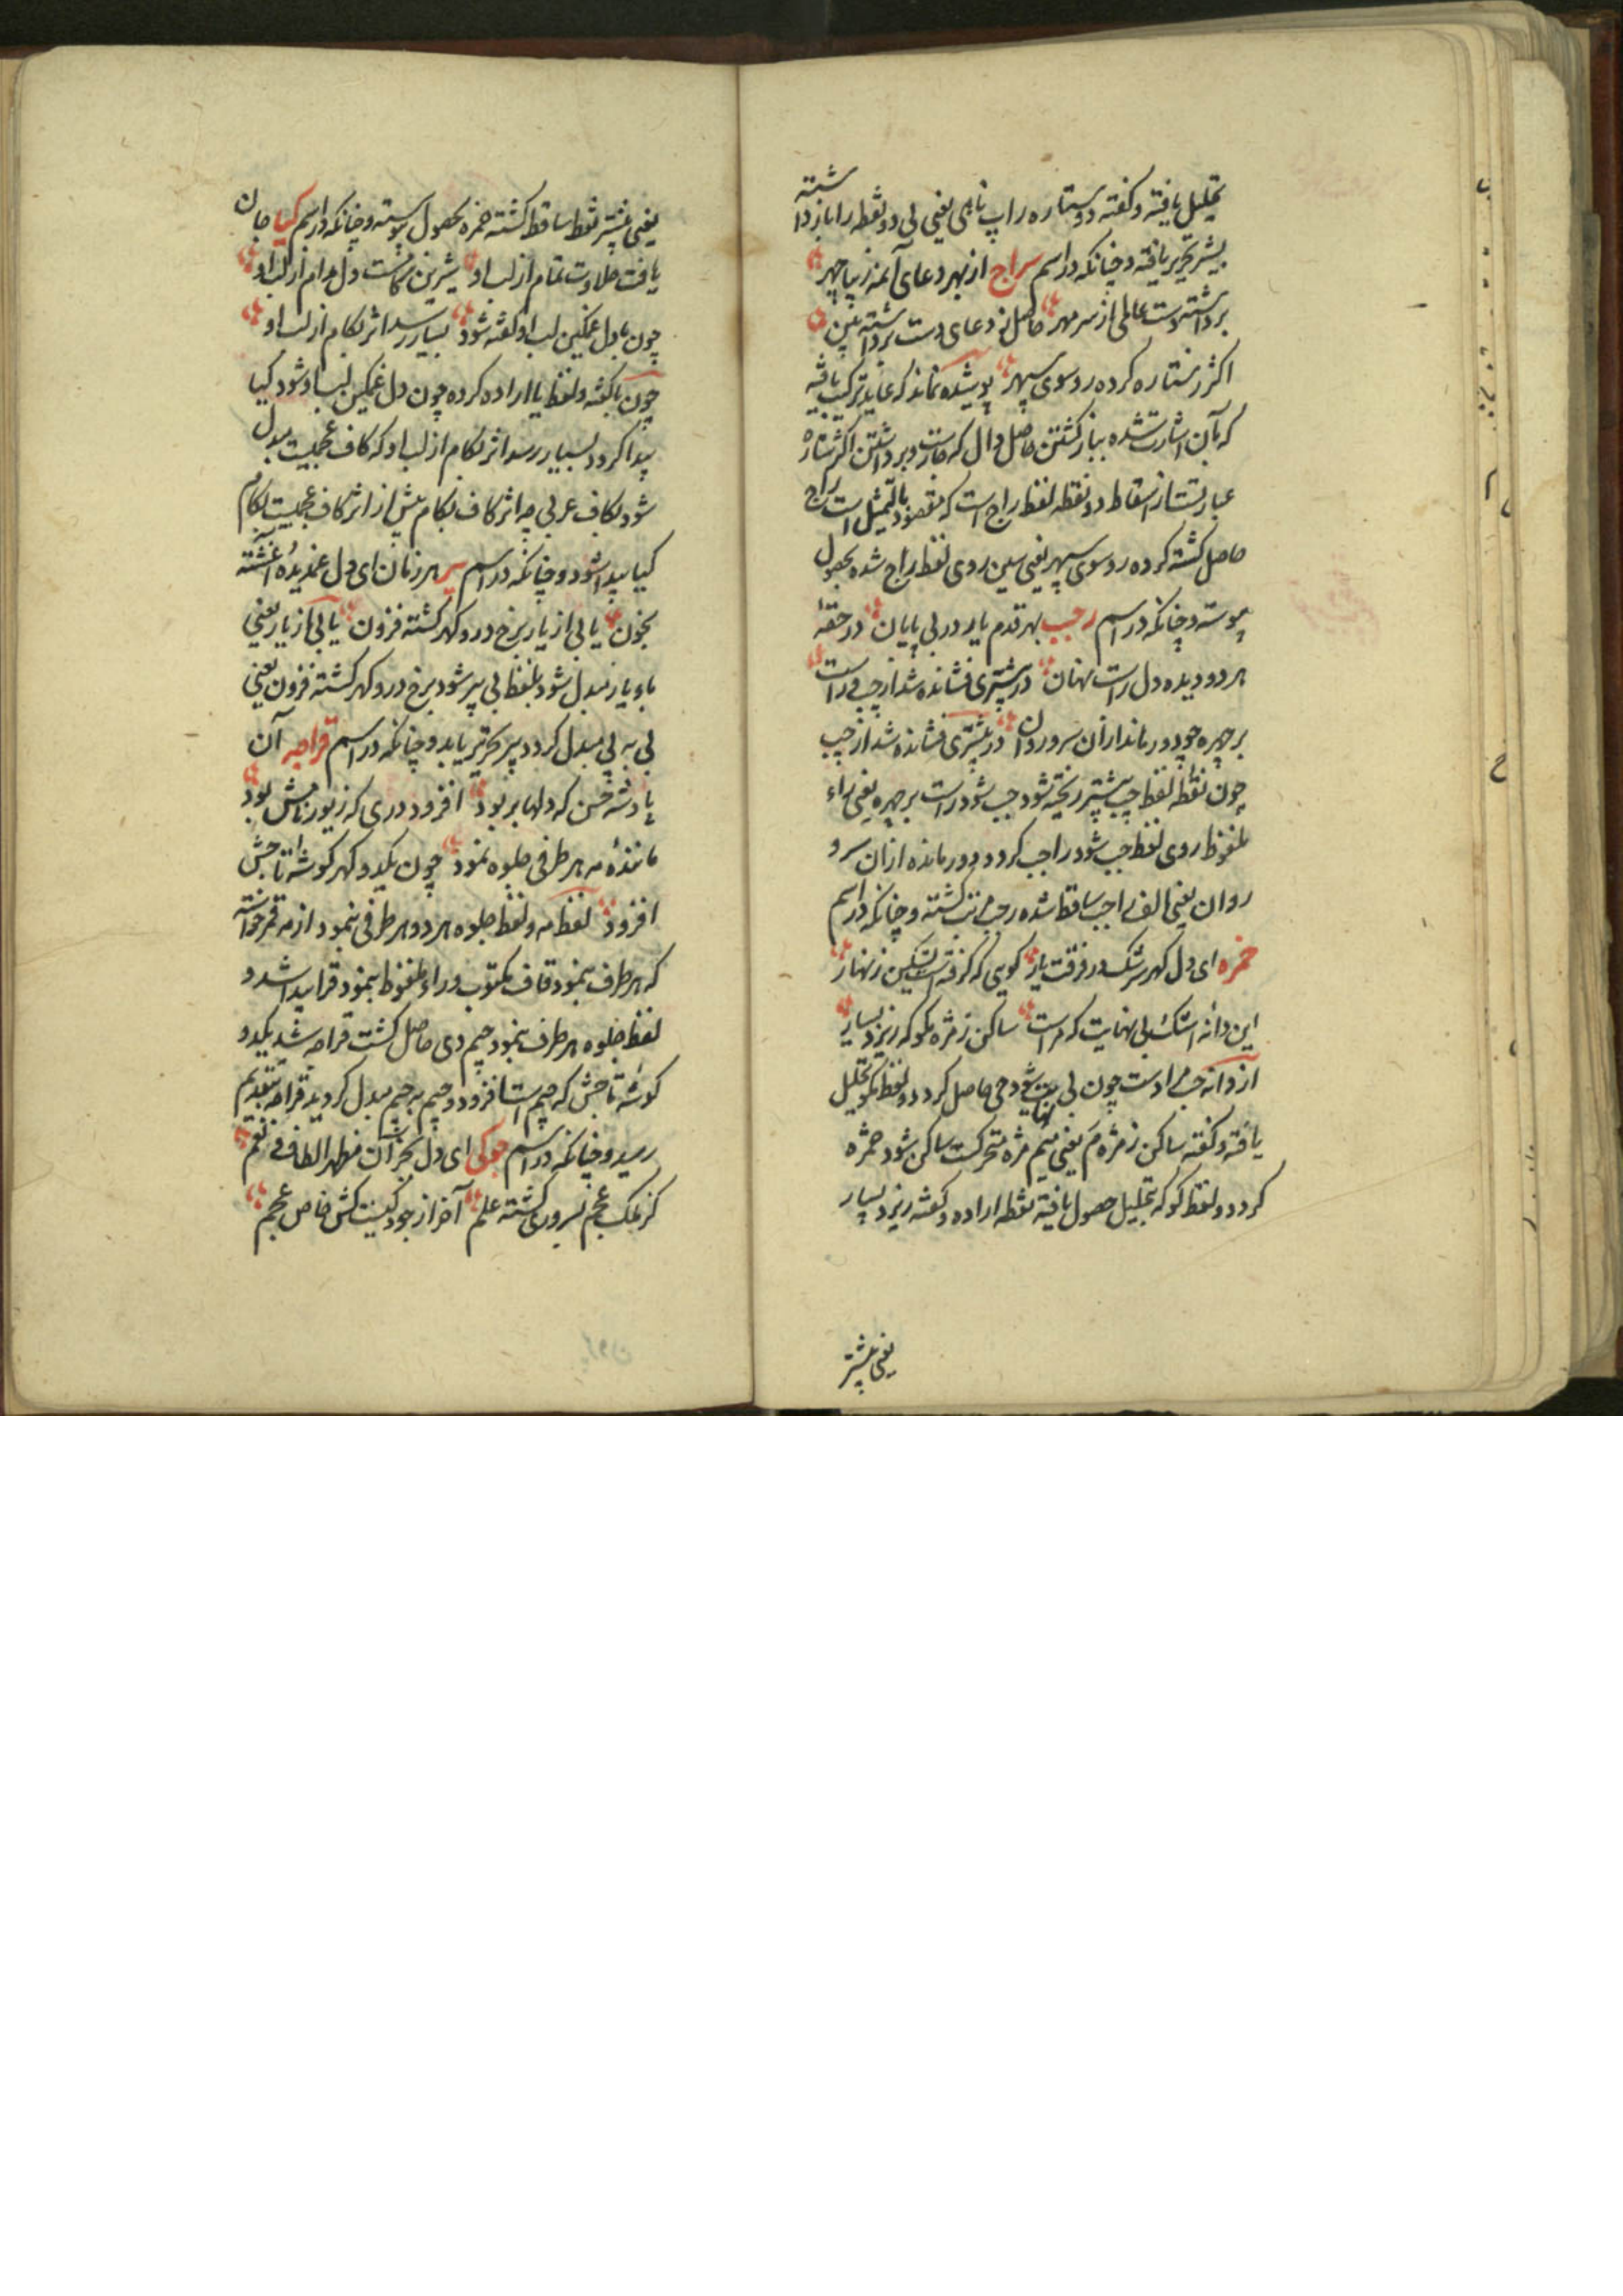 تحلیل یافته و گفته دو ستاره را پ ناهی یعنی لی دو نقطه را باز داشته
بیشتر تحریر یافته و چنانکه در اسم سراج از بهر دعای آنمه زیبا چهر
برداشته دست عالمی از سر مهر حاصل ز دعای دست برداشته بین
اکثر ز ستاره کرده رو سوی سپهر پوشیده نماند که عاید ترکیب یافته
که بآن اشارت شده بباز گشتن حاصل دال که حارست و برداشتن اکثر ستاره
عبارتست از اسقاط دو نقطه لفظ راج است که مقصود بالتمثیل است راج
حاصل گشته کرده رو سوی سپهر یعنی سین روی لفظ راج شده بحصول
پیوسته و چنانکه در اسم رجب بهر قدم یار در بی پایان در حقه
هر دو دیده دل راست نهان در مشتری فشانده شد از چپ و راست
بر چهره چو دور ماند از آن سرو روان در مشتری فشانده شد از چپ
چون نقطه لفظ چپ بیشتر ریخته شود جب شود راست بر چهره یعنی راء
ملفوظ روی لفظ جب شود راجب گردد و دور مانده از آن سرو
روان یعنی الف راجب ساقط شده رجب مرتب گشته و چنانکه در اسم
حمزه ای دل گهر سرشک در فرقت یار گویی که گرفته است تسکین زنهار
این دانه اشک بی نهایت که مراست ساکن ز مژه مگو که ریزد بسیار
از دانه حب مرادست چون بی نهایت شود حی حاصل گردد و لفظ مگو تحلیل
یافته و گفته ساکن ز مژه مَ یعنی میم مژه متحرکست ساکن شود حمژه
گردد و لفظ گو که بتحلیل حصول یافته نقطه اراده و گفته ریزد بسیار
یعنی بیشتر
یعنی بیشتر نقط ساقط گشته حمزه بحصول پیوسته و چنانکه در اسم کیا جان
یافت حلاوت تمام از لب او شیرین دل مدام از لب او
چون با دل غمگین لب او گفته شود بسیار رسد اثر بکام از لب او
چون با گفته و لفظ یا اراده کرده چون دل غمگین لب او شود کیا
پیدا گردد بسیار رسد اثر بکام از لب او که کاف عجمیست مبدل
شود بکاف عربی چه اثر کاف بکام بیش از اثر کاف عجمیست بکام
کیا پیدا شود و چنانکه در اسم پیر هر زمان ای دل غمدیده آغشته
بخون یا بی از یار برخ در و گهر گشته فزون یا بی از یار یعنی
با و یا ز مبدل شود بلفظ بی پیر شود برخ در و گهر گشته فزون یعنی
بی به پی مبدل گردد پیر تحریر یابد و چنانکه در اسم قراجه آن
پادشه حسن که دلها بربود افزود دری که زیور تاجش بود
ماننده مه هر طرفی جلوه نمود چون یکدو گهر گوشه تاجش
افزود لفظ مه و لفظ جلوه هر دو هر طرفی بنمود از مه قمر خواسته
که هر طرف بنمود قاف مکتوب و راء ملفوظ بنمود قرا پیدا شد و
لفظ جلوه هر طرف بنمود جیم و ی حاصل گشت قراجه شد یکدو
گوشه تاجش که جیم است افزود و جیم به چیم مبدل گردید قراچه بتقدیم
رسید و چنانکه در اسم جوکی ای دل بجز آن مظهر الطاف و نعم
کز ملک عجم بسروری گشته علم آخر از جود کیست کش خاص عجم